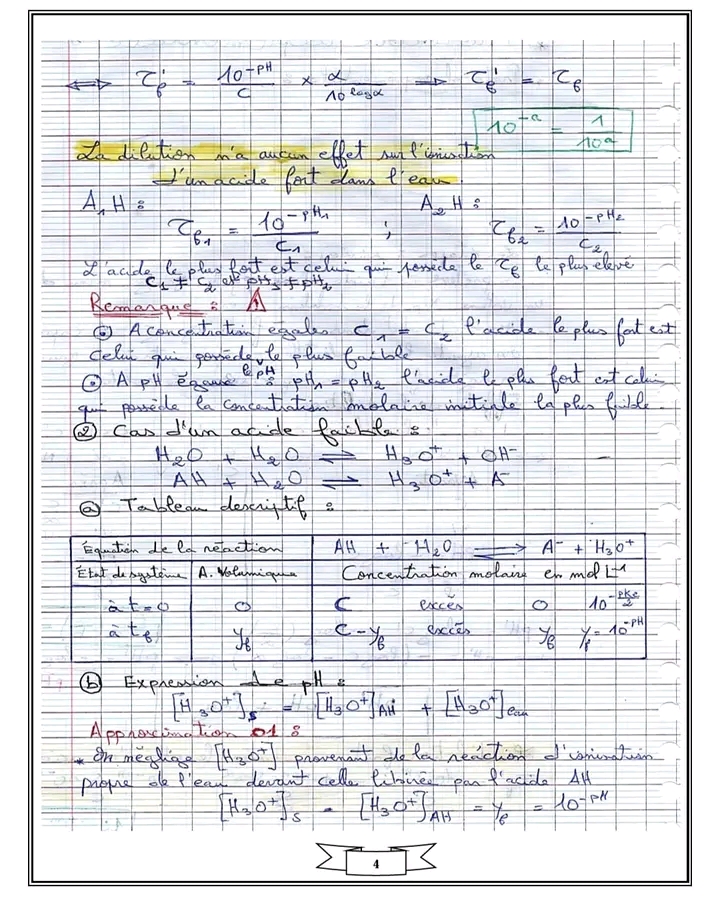 ⟺ τ'f = 10^-pH / C × α / 10^logα ⟹ τf' = τf
10^-a = 1 / 10^a
La dilution n'a aucun effet sur l'ionisation
d'un acide fort dans l'eau.
A₁H : A₂H :
τf₁ = 10^-pH₁ / C₁ ; τf₂ = 10^-pH₂ / C₂
L'acide le plus fort est celui qui possède le τf le plus élevé
C₁ ≠ C₂ et pH₁ ≠ pH₂
Remarque : ⚠
⊙ A concentration egales C₁ = C₂ l'acide le plus fort est
celui qui possède le plus faible
le pH
⊙ A pH égaux : pH₁ = pH₂ l'acide le plus fort est celui
qui possède la concentration molaire initiale la plus faible.
② Cas d'un acide faible :
H₂O + H₂O ⇌ H₃O⁺ + OH⁻
AH + H₂O ⇌ H₃O⁺ + A⁻
ⓐ Tableau descriptif :
Équation de la réaction AH + H₂O ⇌ A⁻ + H₃O⁺
État de système A. Volumique Concentration molaire en mol L⁻¹
à t=0 0 C excès 0 10^-pKe/2
à tf yf C-yf excès yf yf=10^-pH
ⓑ Expression de pH :
[H₃O⁺]s = [H₃O⁺]AH + [H₃O⁺]eau
Approximation 01 :
* On néglige [H₃O⁺] provenant de la réaction d'ionisation
propre de l'eau devant celle libérée par l'acide AH
[H₃O⁺]s = [H₃O⁺]AH = yf = 10^-pH
4